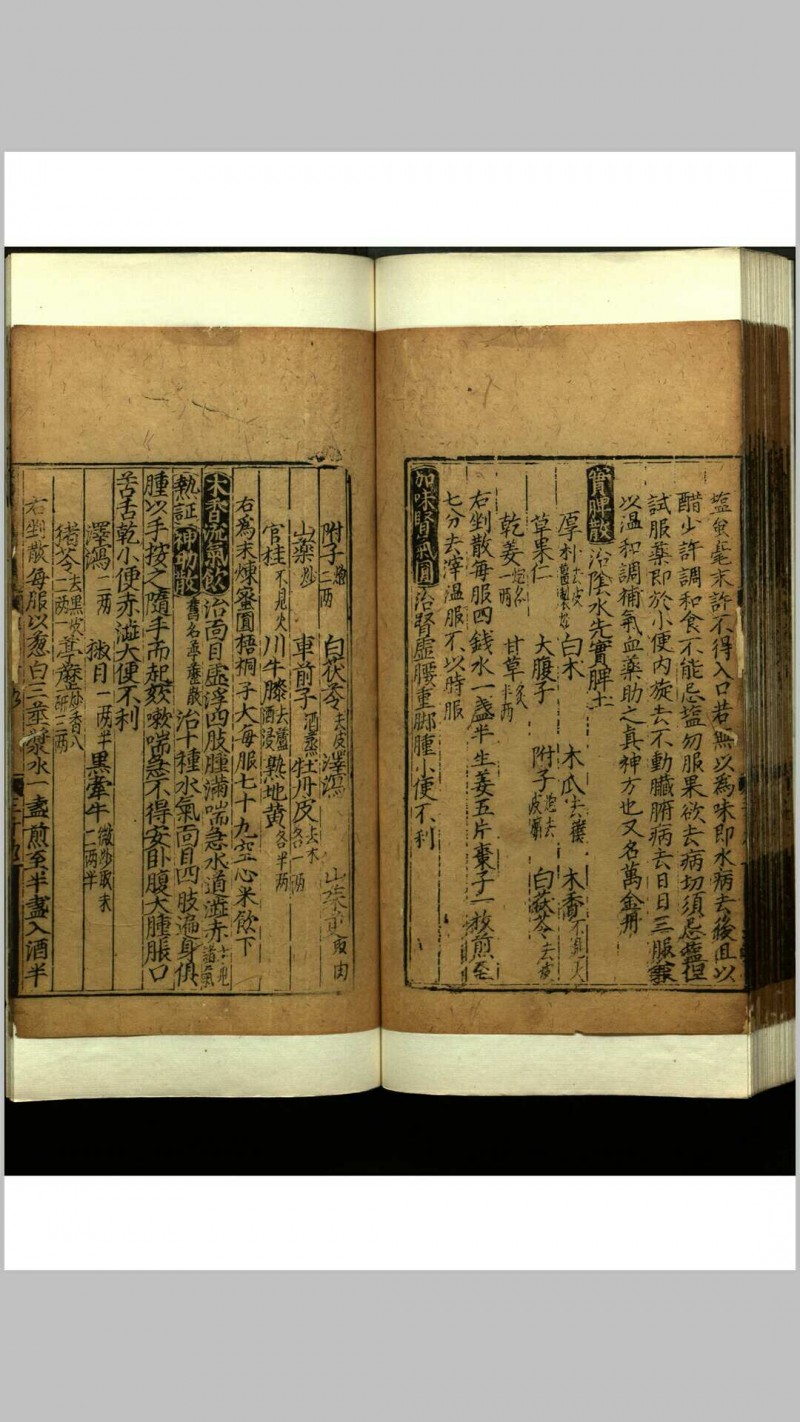 塩𧈧毫末許不得入口若無以為味即水病去後且以
醋少許調和食不能忌塩勿服果欲去病切須忌塩但
試服藥即於小便内旋去不動臟腑病去日日三服兼
以温和調補氣血藥助之真神方也又名萬金丹
實脾散 治陰水先實脾土
厚朴去皮薑製炒 白术 木瓜去穰 木香不見火
草果仁 大腹子 附子炮去皮臍 白茯苓去皮
乾姜炮各一两 甘草炙半两
右剉散每服四錢水一盞半生姜五片棗子一枚煎至
七分去滓温服不以時服
加味腎氣圓 治腎虚腰重脚腫小便不利
附子炮二两 白茯苓去皮 澤瀉 山茱萸取肉
山藥炒 車前子酒蒸 牡丹皮去木各一两
官桂不見火 川牛膝去蘆酒浸 熟地黄各半两
右為末煉蜜圓梧桐子大每服七十九空心米飲下
木香流氣飲 治面目虚浮四肢腫滿喘急水道澁赤方見諸氣
熱証 神功散舊名葶藶散 治十種水氣面目四肢遍身俱
腫以手按之隨手而起咳嗽喘急不得安卧腹大腫脹口
苦舌乾小便赤澁大便不利
澤瀉二两 椒目一两半 黒牽牛微炒取末二两半
猪苓去黒皮二两 葶藶
右剉散每服以葱白三莖漿水一盞煎至半盞入酒半